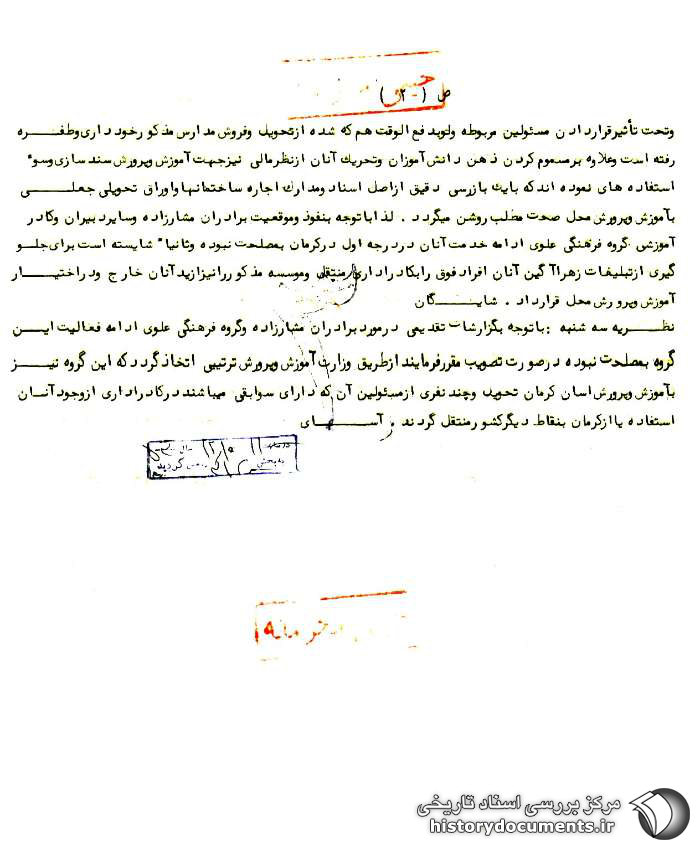 ص (۲)
وتحت تأثیرقراردادن مسئولین مربوطه ولوبدفع الوقت هم که شده ازتحویل وفروش مدارس مذکورخودداری وطفـــره
رفته است وعلاوه برمسموم کردن ذهن دانش آموزان وتحریك آنان ازنظرمالی نیزجهت آموزش وپرورش سندسازی وسوء
استفاده های نموده اندکه بایك بازرسی دقیق ازاصل اسناد ومدارك اجاره ساختمانها واوراق تحویلی جعلـــی
بآموزش وپرورش محل صحت مطلب روشن میگردد . لذا باتوجه بنفوذ وموقعیت برادران مشارزاده وسایردبیران وکادر
آموزشی گروه فرهنگی علوی ادامه خدمت آنان دردرجه اول درکرمان بمصلحت نبوده وثانیا" شایسته است برای جلو
گیری ازتبلیغات زهرآگین آنان افرادفوق رابکادراداری منتقل وموسسه مذکوررانیزازیدآنان خارج ودراختیــار
آموزش وپرورش محل قرارداد . شایــــگان
نظـریه سه شنبه : باتوجه بگزارشات تقدیمی درموردبرادران مشارزاده وگروه فرهنگی علوی ادامه فعالیت ایـن
گروه بمصلحت نبوده درصورت تصویب مقررفرمایند ازطریق وزارت آموزش وپرورش ترتیبی اتخاذ گردد که این گروه نیــز
بآموزش وپرورش استان کرمان تحویل وچند نفری ازمسئولین آن که دارای سوابقی میباشند درکادراداری ازوجودآنـان
استفاده یاازکرمان بنقاط دیگرکشورمنتقل گردند . آســـهای
مرکز بررسی اسناد تاریخی
historydocuments.ir